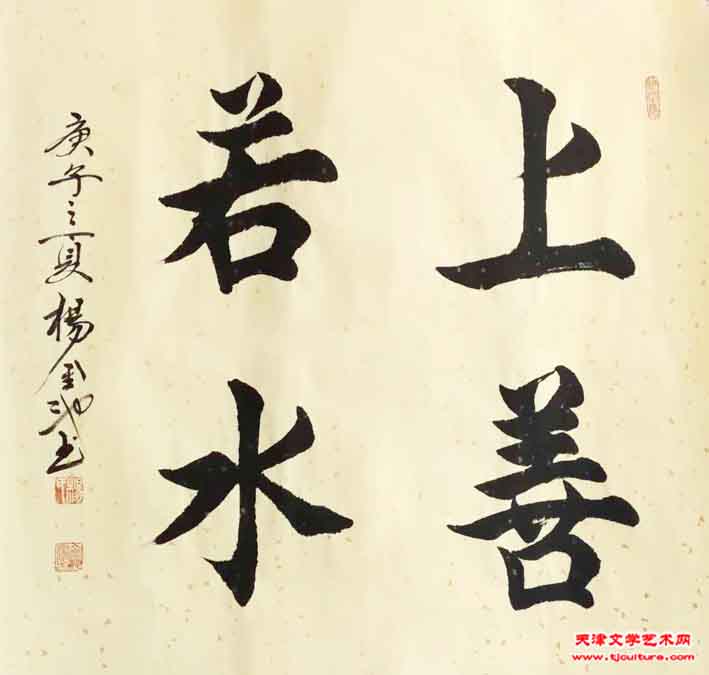 上善
若水
庚子之夏杨金池书
天津文学艺术网
www.tjculture.com